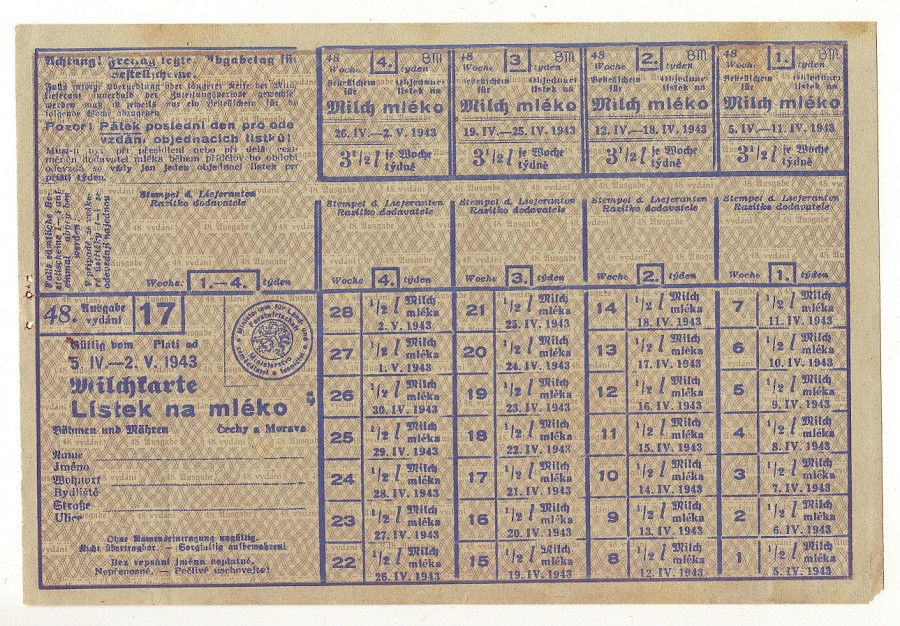 Achtung! Freitag letzter Abgabetag für
Bestellscheine.
Pozor! Pátek poslední den pro ode
vzdání objednacích lístků!
příští týden.
Stempel d. Lieferanten
Razítko dodavatele
Woche. 1.—4. týden
48. Ausgabe
vydání 17
Gültig vom Platí od
5. IV.—2. V. 1943
Milchkarte
Lístek na mléko
Böhmen und Mähren Čechy a Morava
Name
Jméno
Wohnort
Bydliště
Straße
Ulice
Ohne Namenseintragung ungültig.
Nicht übertragbar. – Sorgfältig aufbewahren!
Bez vepsání jména neplatné.
Nepřenosné. – Pečlivě uschovejte!
48 4. BM
Woche týden
Bestellschein für
Objednací lístek na
Milch mléko
26. IV.—2. V. 1943
3 1/2 l je Woche
týdně
Stempel d. Lieferanten
Razítko dodavatele
Woche 4. týden
48 3 BM
Woche týden
Bestellschein für
Objednací lístek na
Milch mléko
19. IV.—25. IV. 1943
3 1/2 l je Woche
týdně
Stempel d. Lieferanten
Razítko dodavatele
Woche 3. týden
48 2. BM
Woche týden
Bestellschein für
Objednací lístek na
Milch mléko
12. IV.—18. IV. 1943
3 1/2 l je Woche
týdně
Stempel d. Lieferanten
Razítko dodavatele
Woche 2. týden
48 1. BM
Woche týden
Bestellschein für
Objednací lístek na
Milch mléko
5. IV.—11. IV. 1943
3 1/2 l je Woche
týdně
Stempel d. Lieferanten
Razítko dodavatele
Woche 1. týden
28 1/2 l Milch mléka 2. V. 1943
21 1/2 l Milch mléka 25. IV. 1943
14 1/2 l Milch mléka 18. IV. 1943
7 1/2 l Milch mléka 11. IV. 1943
27 1/2 l Milch mléka 1. V. 1943
20 1/2 l Milch mléka 24. IV. 1943
13 1/2 l Milch mléka 17. IV. 1943
6 1/2 l Milch mléka 10. IV. 1943
26 1/2 l Milch mléka 30. IV. 1943
19 1/2 l Milch mléka 23. IV. 1943
12 1/2 l Milch mléka 16. IV. 1943
5 1/2 l Milch mléka 9. IV. 1943
25 1/2 l Milch mléka 29. IV. 1943
18 1/2 l Milch mléka 22. IV. 1943
11 1/2 l Milch mléka 15. IV. 1943
4 1/2 l Milch mléka 8. IV. 1943
24 1/2 l Milch mléka 28. IV. 1943
17 1/2 l Milch mléka 21. IV. 1943
10 1/2 l Milch mléka 14. IV. 1943
3 1/2 l Milch mléka 7. IV. 1943
23 1/2 l Milch mléka 27. IV. 1943
16 1/2 l Milch mléka 20. IV. 1943
9 1/2 l Milch mléka 13. IV. 1943
2 1/2 l Milch mléka 6. IV. 1943
22 1/2 l Milch mléka 26. IV. 1943
15 1/2 l Milch mléka 19. IV. 1943
8 1/2 l Milch mléka 12. IV. 1943
1 1/2 l Milch mléka 5. IV. 1943